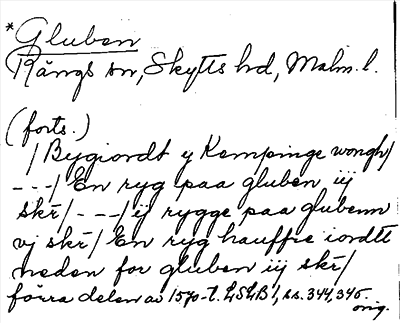 *Gluben
Rängs sn, Skytts hd, Malm. l.
(forts.)
/ Bygiordt y Kempinge wongh/
---/ En ryg paa gluben iij
skr/ ---/ ij rygge paa glubenn
vj skr/ En ryg hauffre iordtt
neden for gluben iij skr/
förra delen av 1570-t. LSLB 1, ss. 344, 345.
orig.